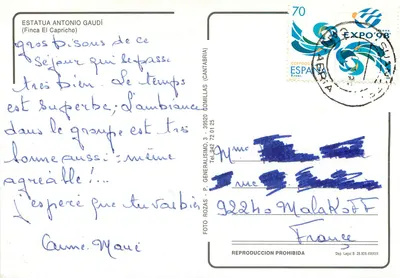 ESTATUA ANTONIO GAUDÍ
(Finca El Capricho)
gros bisous de ce
séjour qui se passe
très bien. Le temps
est superbe; l'ambiance
dans le groupe est très
bonne aussi: même
agréable!...
j'espère que tu vas bien
FOTO ROZAS - P. GENERALISIMO, 3 - 39520 COMILLAS (CANTABRIA)
Tel. 942 72 01 25
70
EXPO'98
ESPAÑA
CANTABRIA
Mme
92240 Malakoff
France
REPRODUCCION PROHIBIDA